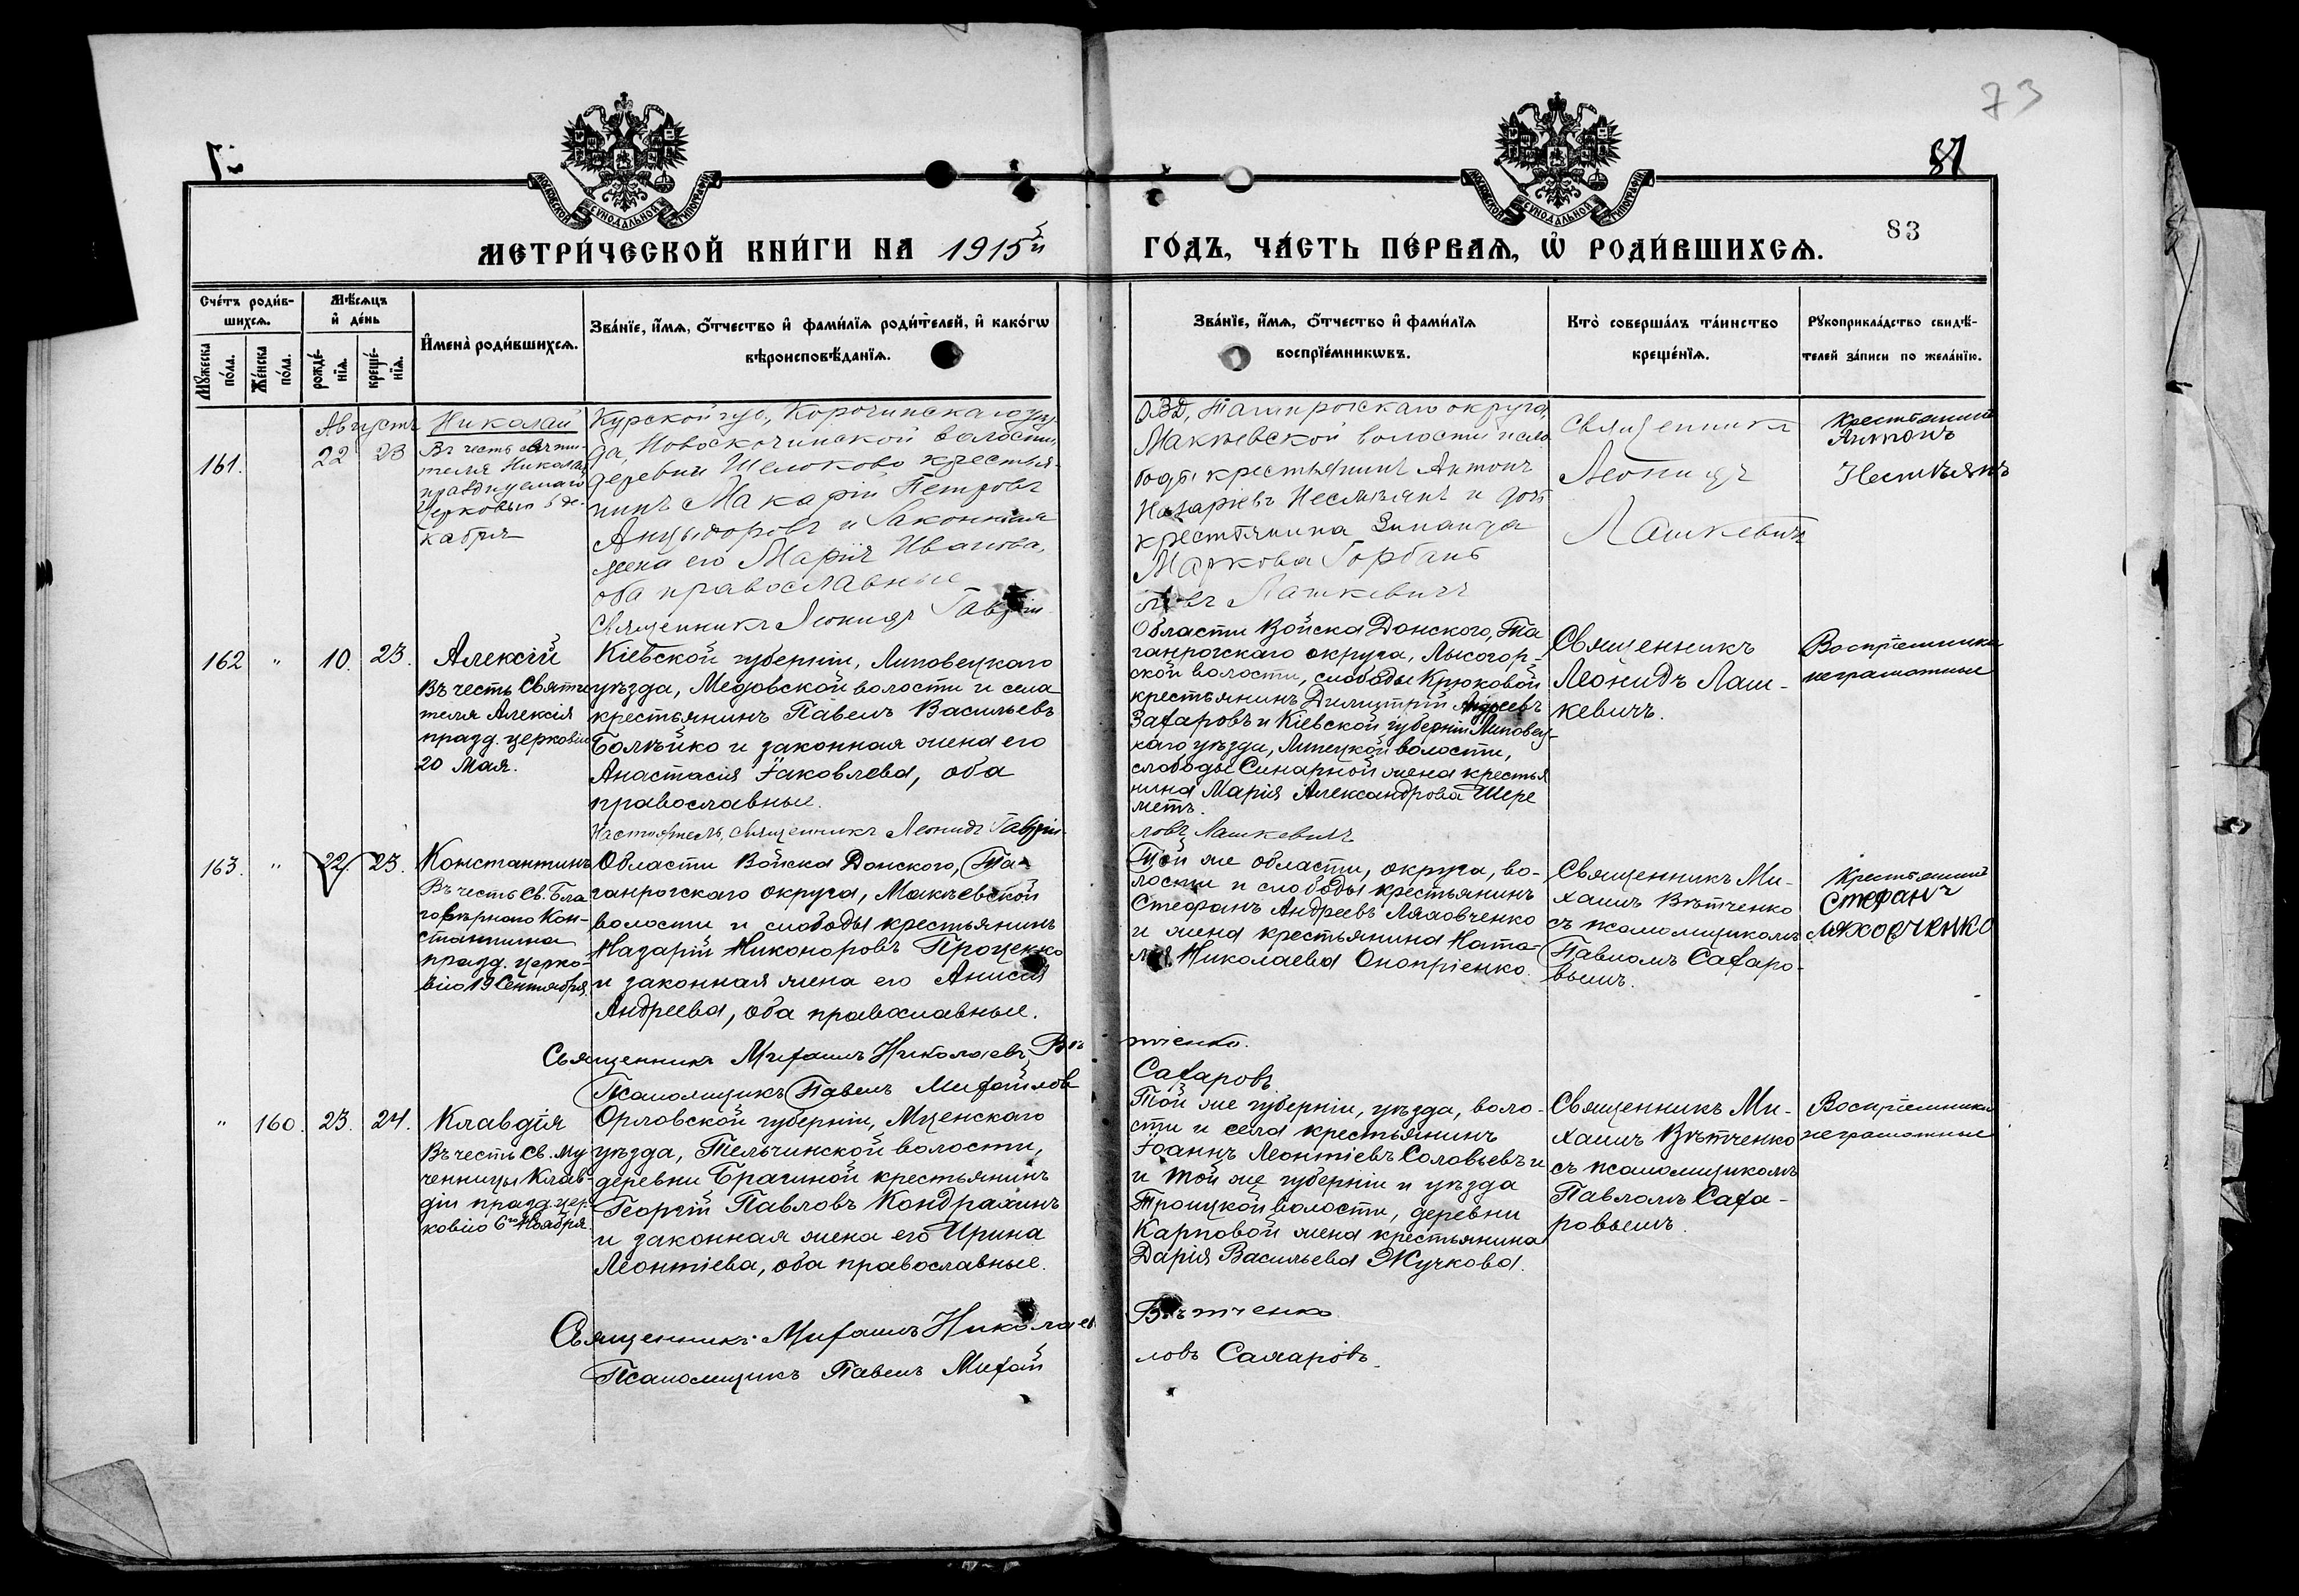 73
81
МОСКОВСКОЙ СѴНОДАЛЬНОЙ ТИПОГРАФІИ
МОСКОВСКОЙ СѴНОДАЛЬНОЙ ТИПОГРАФІИ
83
МЕТРИ́ЧЕСКОЙ КНИ́ГИ НА 1915й
ГО́ДЪ, ЧА́СТЬ ПЕ́РВАѦ, Ѽ РОДИ́ВШИХСѦ.
Сче́тъ роди́в-
шихсѧ.
Мꙋ́жеска
по́ла.
Же́нска
по́ла.
Мѣ́сѧцъ
и҆ де́нь
рожде́-
нїѧ.
креще́-
нїѧ.
И҆мена̀ роди́вшихсѧ.
Зва́нїе, и҆́мѧ, ѻ҆́тчество и҆ фами́лїѧ роди́телей, и҆ како́гѡ
вѣроисповѣ́данїѧ.
Зва́нїе, и҆́мѧ, ѻ҆́тчество и҆ фами́лїѧ
воспрїе́мникѡвъ.
Кто̀ соверша́лъ та́инство
креще́нїѧ.
Рꙋкоприкла́дство свидѣ́-
телей за́писи по жела́нїю.
Августъ
161.
22
23
Николай
Въ честь святи-
теля Николая
празднуемаго
Церковью 6 де-
кабря
Курской губ., Корочинскаго уѣз-
да, Новоскочинской волости,
деревни Шелоково крестья-
нинъ Макарій Петровъ
Анцыфоровъ и законная
жена его Марія Иванова,
оба православные
Священникъ Леонидъ Гавріи
О.В.Д, Таганрогскаго округа,
Макѣевской волости и сло
боды крестьянинъ Антонъ
Назарьевъ Несмѣянъ и дочь
крестьянина Зинаида
Маркова Горбань
ловъ Лашкевичъ
Священникъ
Леонидъ
Лашкевичъ
Крестьянинъ
Антонъ
Несмѣянъ
162
"
10.
23.
Алексій
Въ честь Святи
теля Алексія
празд. церковію
20 Мая.
Кіевской губерніи, Липовецкаго
уѣзда, Медовской волости и села
крестьянинъ Павелъ Васильевъ
Болѣйко и законная жена его
Анастасія Іаковлева, оба
православные.
Настоятель, священникъ Леонидъ Гавріи-
Области Войска Донского, Та
ганрогскаго округа, Лысогор-
ской волости, слободы Крюковой
крестьянинъ Димитрій Андреевъ
Захаровъ и Кіевской губерніи Липовец-
каго уѣзда, Липецкой волости,
слободы Синарной жена крестья
нина Марія Александрова Шере
метъ.
ловъ Лашкевичъ
Священникъ
Леонидъ Лаш-
кевичъ.
Воспріемники
неграмотные
163.
"
22.
23.
Константинъ
Въ честь Св. Бла
говѣрнаго Кон-
стантина
празд. церко-
вію 19 Сентября.
Области Войска Донского, Та-
ганрогскаго округа, Макѣевской
волости и слободы крестьянинъ
Назарій Никоноровъ Проценко
и законная жена его Анисія
Андреева, оба православные.
Священникъ Михаилъ Николаевъ Вѣ
Псаломщикъ Павелъ Михайлов
Той же области, округа, во-
лости и слободы крестьянинъ
Стефанъ Андреевъ Ляховченко
и жена крестьянина Ната-
лія Николаева Оноприенко.
тченко.
Сахаровъ.
Священникъ Ми-
хаилъ Вѣтченко
съ псаломщикомъ
Павломъ Сахаро-
вымъ.
Крестьянинъ
Стефанъ
Ляховченко
"
160.
23.
24.
Клавдія
Въ честь Св. Му
ченицы Клав-
діи празд. цер-
ковію 6го Ноября.
Орловской губерніи, Мценскаго
уѣзда, Тельчинской волости,
деревни Брагиной крестьянинъ
Георгій Павловъ Кондрахинъ
и законная жена его Ирина
Леонтіева, оба православные.
Священникъ Михаилъ Николаев
Псаломщикъ Павелъ Михай
Той же губерніи, уѣзда, воло-
сти и села крестьянинъ
Іоаннъ Леонтіевъ Соловьевъ и
и той же губерніи и уѣзда
Троицкой волости, деревни
Карповой жена крестьянина
Дарія Васильева Жучкова.
Вѣтченко
ловъ Сахаровъ.
Священникъ Ми-
хаилъ Вѣтченко
съ псаломщикомъ
Павломъ Саха-
ровымъ.
Воспріемники
неграмотные